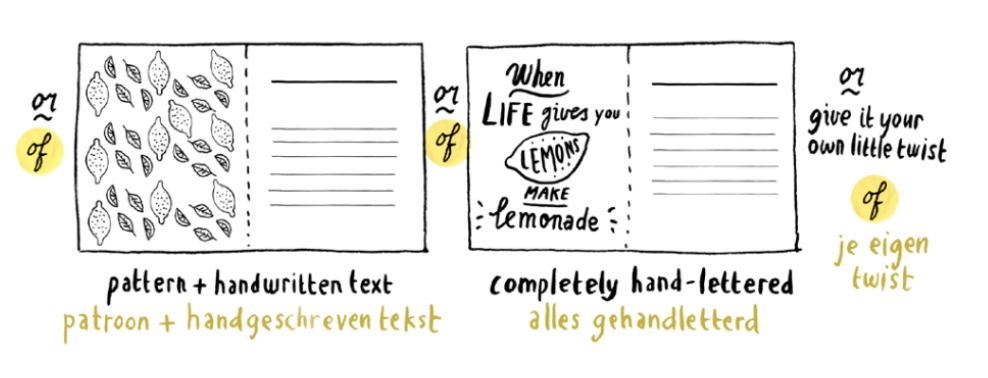 or
of
pattern + handwritten text
patroon + handgeschreven tekst
or
of
When
LIFE gives you
LEMONS
MAKE
lemonade
completely hand-lettered
alles gehandletterd
or
give it your
own little twist
of
je eigen
twist